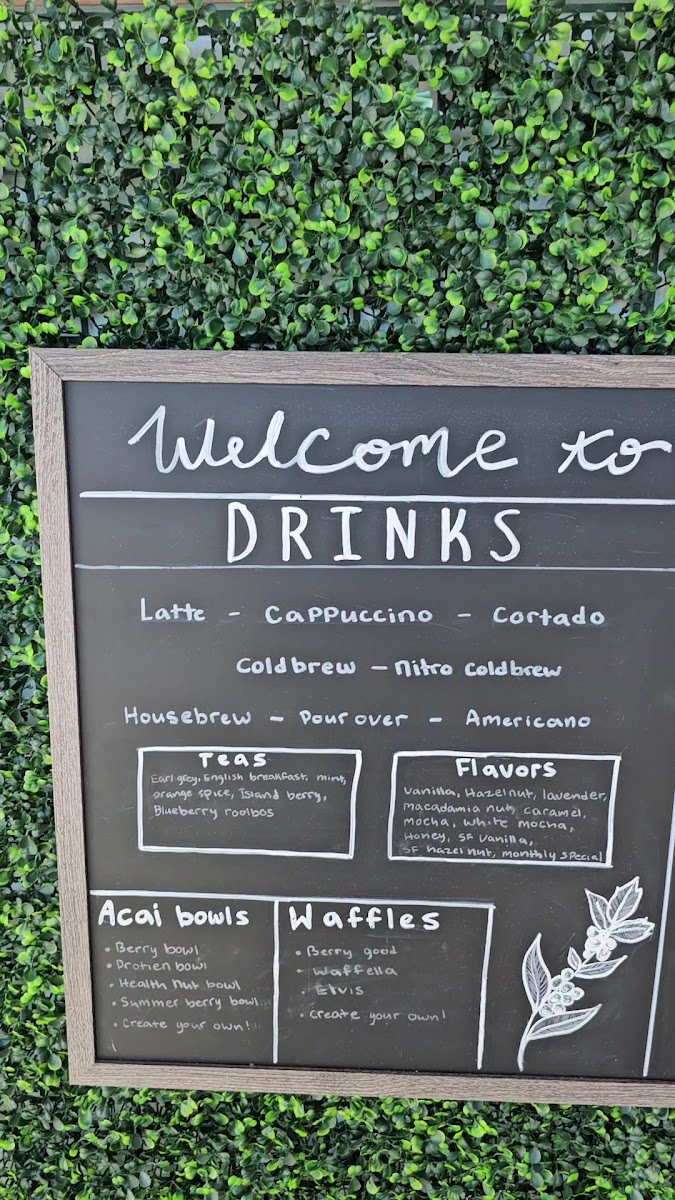 Welcome to
DRINKS
Latte - Cappuccino - Cortado
Coldbrew - Nitro coldbrew
Housebrew - Pour over - Americano
Teas
Earl grey, English breakfast, mint,
orange spice, Island berry,
Blueberry rooibos
Flavors
Vanilla, Hazelnut, lavender,
macadamia nut, caramel,
mocha, white mocha,
Honey, SF Vanilla,
SF hazelnut, monthly special
Acai bowls
• Berry bowl
• Protien bowl
• Health nut bowl
• Summer berry bowl
• Create your own!
Waffles
• Berry good
• Waffella
• Elvis
• create your own!